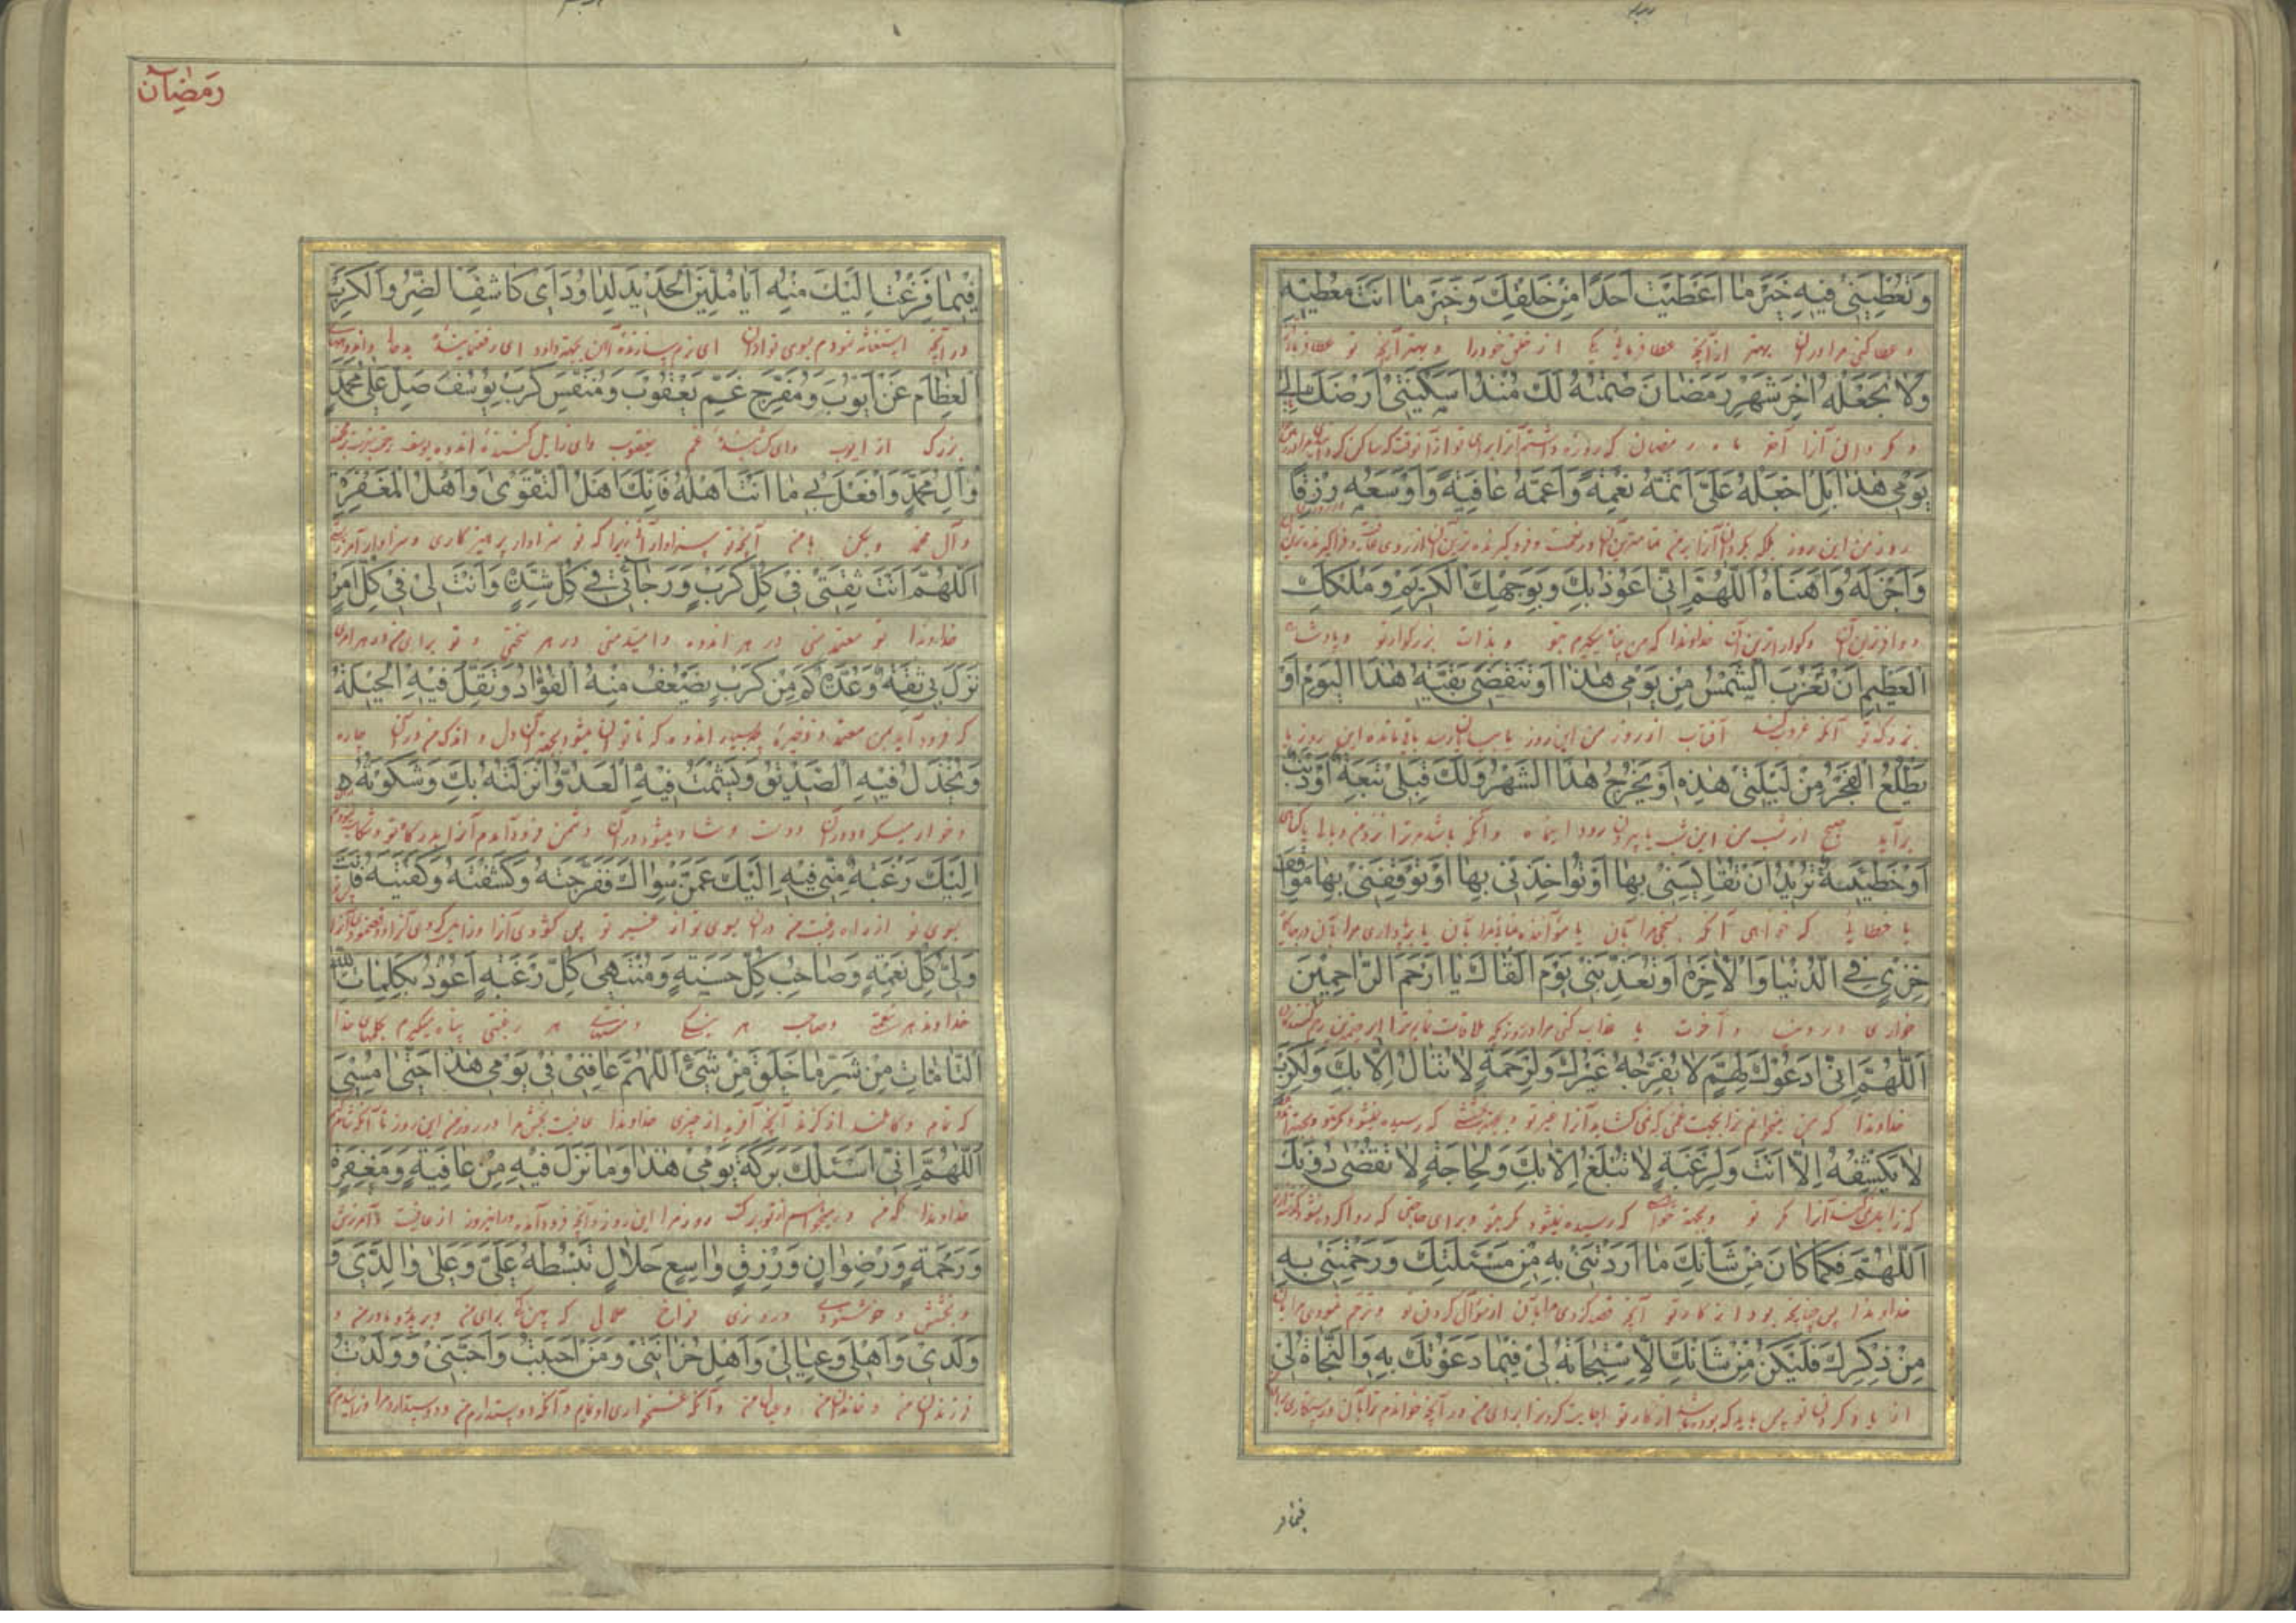 وَتُعْطِيَنِي فِيهِ خَيْرَ مَا اَعْطَيْتَ اَحَدًا مِنْ خَلْقِكَ وَخَيْرَ مَا اَنْتَ مُعْطِيهِ
و عطا کنی مرا در آن بهتر از آنچه عطا فرمائی یکی از خلق خود را و بهتر آنچه تو عطا فرمائی
وَلَا تَجْعَلْهُ اٰخِرَ شَهْرِ رَمَضَانَ صُمْتُهُ لَكَ مُنْذُ اَسْكَنْتَنِي اَرْضَكَ اِلىٰ
و مکردان آنرا آخر ماه رمضان که روزه داشتم آنرا برای تو از آنوقت که ساکن کردی
يَوْمِي هٰذَا بَلِ اجْعَلْهُ عَلَيَّ اَتَمَّهُ نِعْمَةً وَاَعَمَّهُ عَافِيَةً وَاَوْسَعَهُ رِزْقًا
روز من این روز بلکه بکردان آنرا بر من تمامترین آن در نعمت و فروکیرنده ترین آن از روی عافیت
وَاَجْزَلَهُ وَاَهْنَاَهُ اَللّٰهُمَّ اِنِّي اَعُوذُ بِكَ وَبِوَجْهِكَ الْكَرِيمِ وَمُلْكِكَ
و وافرترین آن و کواراترین آن خداوندا که من پناه میکیرم بتو و بذات بزرکوار تو و پادشاه
الْعَظِيمِ اَنْ تَغْرُبَ الشَّمْسُ مِنْ يَوْمِي هٰذَا اَوْ يَنْقَضِيَ بَقِيَّةُ هٰذَا الْيَوْمِ اَوْ
بزرک تو آنکه غروب کند آفتاب از روز من این روز یا بپایان رسد باقیمانده این روز یا
يَطْلُعَ الْفَجْرُ مِنْ لَيْلَتِي هٰذِهِ اَوْ يَخْرُجَ هٰذَا الشَّهْرُ وَلَكَ قِبَلِي تَبِعَةٌ اَوْ ذَنْبٌ
بر آید صبح از شب من این شب یا بیرون رود این ماه و آنکه باشد مر ترا نزد من وبالی یا کناهی
اَوْ خَطِيئَةٌ تُرِيدُ اَنْ تُقَايِسَنِي بِهَا اَوْ تُؤَاخِذَنِي بِهَا اَوْ تُوقِفَنِي بِهَا مَوْقِفَ
یا خطائی که خواهی آنکه بسنجی مرا بآن یا مؤاخذه نمائی مرا بآن یا بازداری مرا بآن در جای
خِزْيٍ فِي الدُّنْيَا وَالْاٰخِرَةِ اَوْ تُعَذِّبَنِي يَوْمَ اَلْقَاكَ يَا اَرْحَمَ الرَّاحِمِينَ
خواری در دنیا و آخرت یا عذاب کنی مرا در روزیکه ملاقات نمایم ترا ای رحیم ترین رحم کنندکان
اَللّٰهُمَّ اِنِّي اَدْعُوكَ لِهَمٍّ لَا يُفَرِّجُهُ غَيْرُكَ وَلِرَحْمَةٍ لَا تُنَالُ اِلَّا بِكَ وَلِكَرْبٍ
خداوندا که من میخوانم ترا بجهت غمی که نمی کشاید آنرا غیر تو و بجهت رحمتی که رسیده نمیشود مکر بتو
لَا يَكْشِفُهُ اِلَّا اَنْتَ وَلِرَغْبَةٍ لَا تُبْلَغُ اِلَّا بِكَ وَلِحَاجَةٍ لَا تُقْضٰى دُونَكَ
که زایل نمی کند آنرا مکر تو و بجهة خواهشی که رسیده نمیشود مکر بتو و برای حاجتی که روا کرده نمیشود
اَللّٰهُمَّ فَكَمَا كَانَ مِنْ شَأْنِكَ مَا اَرَدْتَنِي بِهِ مِنْ مَسْئَلَتِكَ وَرَحِمْتَنِي بِهِ
خداوندا پس چنانچه بود از کار تو آنچه قصد کردی مرا بآن از سؤال کردن تو و ترحم نمودی مرا بآن
مِنْ ذِكْرِكَ فَلْيَكُنْ مِنْ شَأْنِكَ الْاِسْتِجَابَةُ لِي فِيمَا دَعَوْتُكَ بِهِ وَالنَّجَاةُ لِي
از یاد کردن تو پس باید که بوده باشد از کار تو اجابت کردن برای من در آنچه خواندم ترا بآن و رستکاری برای
فیما فر
رَمَضَان
فِيمَا فَزِعْتُ اِلَيْكَ مِنْهُ اَيَا مُلَيِّنَ الْحَدِيدِ لِدَاوُدَ اَيْ كَاشِفَ الضُّرِّ وَالْكُرَبِ
در آنچه استغاثه نمودم بسوی تو از آن ای نرم سازنده آهن بجهة داود ای رفع نماینده
الْعِظَامِ عَنْ اَيُّوبَ وَمُفَرِّجَ غَمِّ يَعْقُوبَ وَمُنَفِّسَ كَرْبِ يُوسُفَ صَلِّ عَلٰى مُحَمَّدٍ
بزرک از ایوب و ای کشاینده غم یعقوب و ای زایل کننده اندوه یوسف
وَاٰلِ مُحَمَّدٍ وَافْعَلْ بِي مَا اَنْتَ اَهْلُهُ فَاِنَّكَ اَهْلُ التَّقْوٰى وَاَهْلُ الْمَغْفِرَةِ
و آل محمد و بکن با من آنچه تو سزاوار آنی زیرا که تو سزاوار پرهیزکاری و سزاوار آمرزش
اَللّٰهُمَّ اَنْتَ ثِقَتِي فِي كُلِّ كَرْبٍ وَرَجَائِي فِي كُلِّ شِدَّةٍ وَاَنْتَ لِي فِي كُلِّ اَمْرٍ
خداوندا تو معتمد منی در هر اندوه و امید منی در هر سختی و تو برای من در هر امری
نَزَلَ بِي ثِقَةٌ وَعُدَّةٌ كَمْ مِنْ كَرْبٍ يَضْعُفُ مِنْهُ الْفُؤَادُ وَتَقِلُّ فِيهِ الْحِيلَةُ
که فرود آید بمن معتمد و ذخیره چه بسیار اندوه که ناتوان میشود بجهة آن دل و اندک میشود در آن چاره
وَيَخْذُلُ فِيهِ الصَّدِيقُ وَيَشْمَتُ فِيهِ الْعَدُوُّ اَنْزَلْتُهُ بِكَ وَشَكَوْتُهُ
و خوار میکند در آن دوست و شاد میشود در آن دشمن فرود آوردم آنرا بدرکاه تو و شکایت نمودم
اِلَيْكَ رَغْبَةً مِنِّي فِيهِ اِلَيْكَ عَمَّنْ سِوَاكَ فَفَرَّجْتَهُ وَكَشَفْتَهُ وَكَفَيْتَهُ فَاَنْتَ
بسوی تو از راه رغبت من در آن بسوی تو از غیر تو پس کشودی آنرا و زایل کردی آنرا
وَلِيُّ كُلِّ نِعْمَةٍ وَصَاحِبُ كُلِّ حَسَنَةٍ وَمُنْتَهٰى كُلِّ رَغْبَةٍ اَعُوذُ بِكَلِمَاتِ اللّٰهِ
خداوند هر نعمت و صاحب هر نیکی و منتهای هر رغبتی پناه میکیرم بکلمهای خدا
التَّامَّاتِ مِنْ شَرِّ مَا خَلَقَ مِنْ شَيْءٍ اَللّٰهُمَّ عَافِنِي فِي يَوْمِي هٰذَا حَتّٰى اُمْسِيَ
که تمام و کاملند از کزند آنچه آفرید از چیزی خداوندا عافیت بخش مرا در روز من این روز تا آنکه
اَللّٰهُمَّ اِنِّي اَسْئَلُكَ بَرَكَةَ يَوْمِي هٰذَا وَمَا نَزَلَ فِيهِ مِنْ عَافِيَةٍ وَمَغْفِرَةٍ
خداوندا که من میخواهم از تو برکت روز مرا این روز و آنچه فرود آمد در این روز از عافیت و آمرزش
وَرَحْمَةٍ وَرِضْوَانٍ وَرِزْقٍ وَاسِعٍ حَلَالٍ تَبْسُطُهُ عَلَيَّ وَعَلٰى وَالِدَيَّ وَ
و بخشش و خوشنودی و روزی فراخ حلال که پهن کنی برای من و بر پدر و مادر من و
وَلَدِي وَاَهْلِي وَعِيَالِي وَاَهْلِ حُزَانَتِي وَمَنْ اَحْبَبْتُ وَاَحَبَّنِي وَوَلَدْتُ
فرزندان من و خاندان من و عیال من و آنکه غمخواری او نمایم و آنکه دوست دارم من و دوست دارد مرا